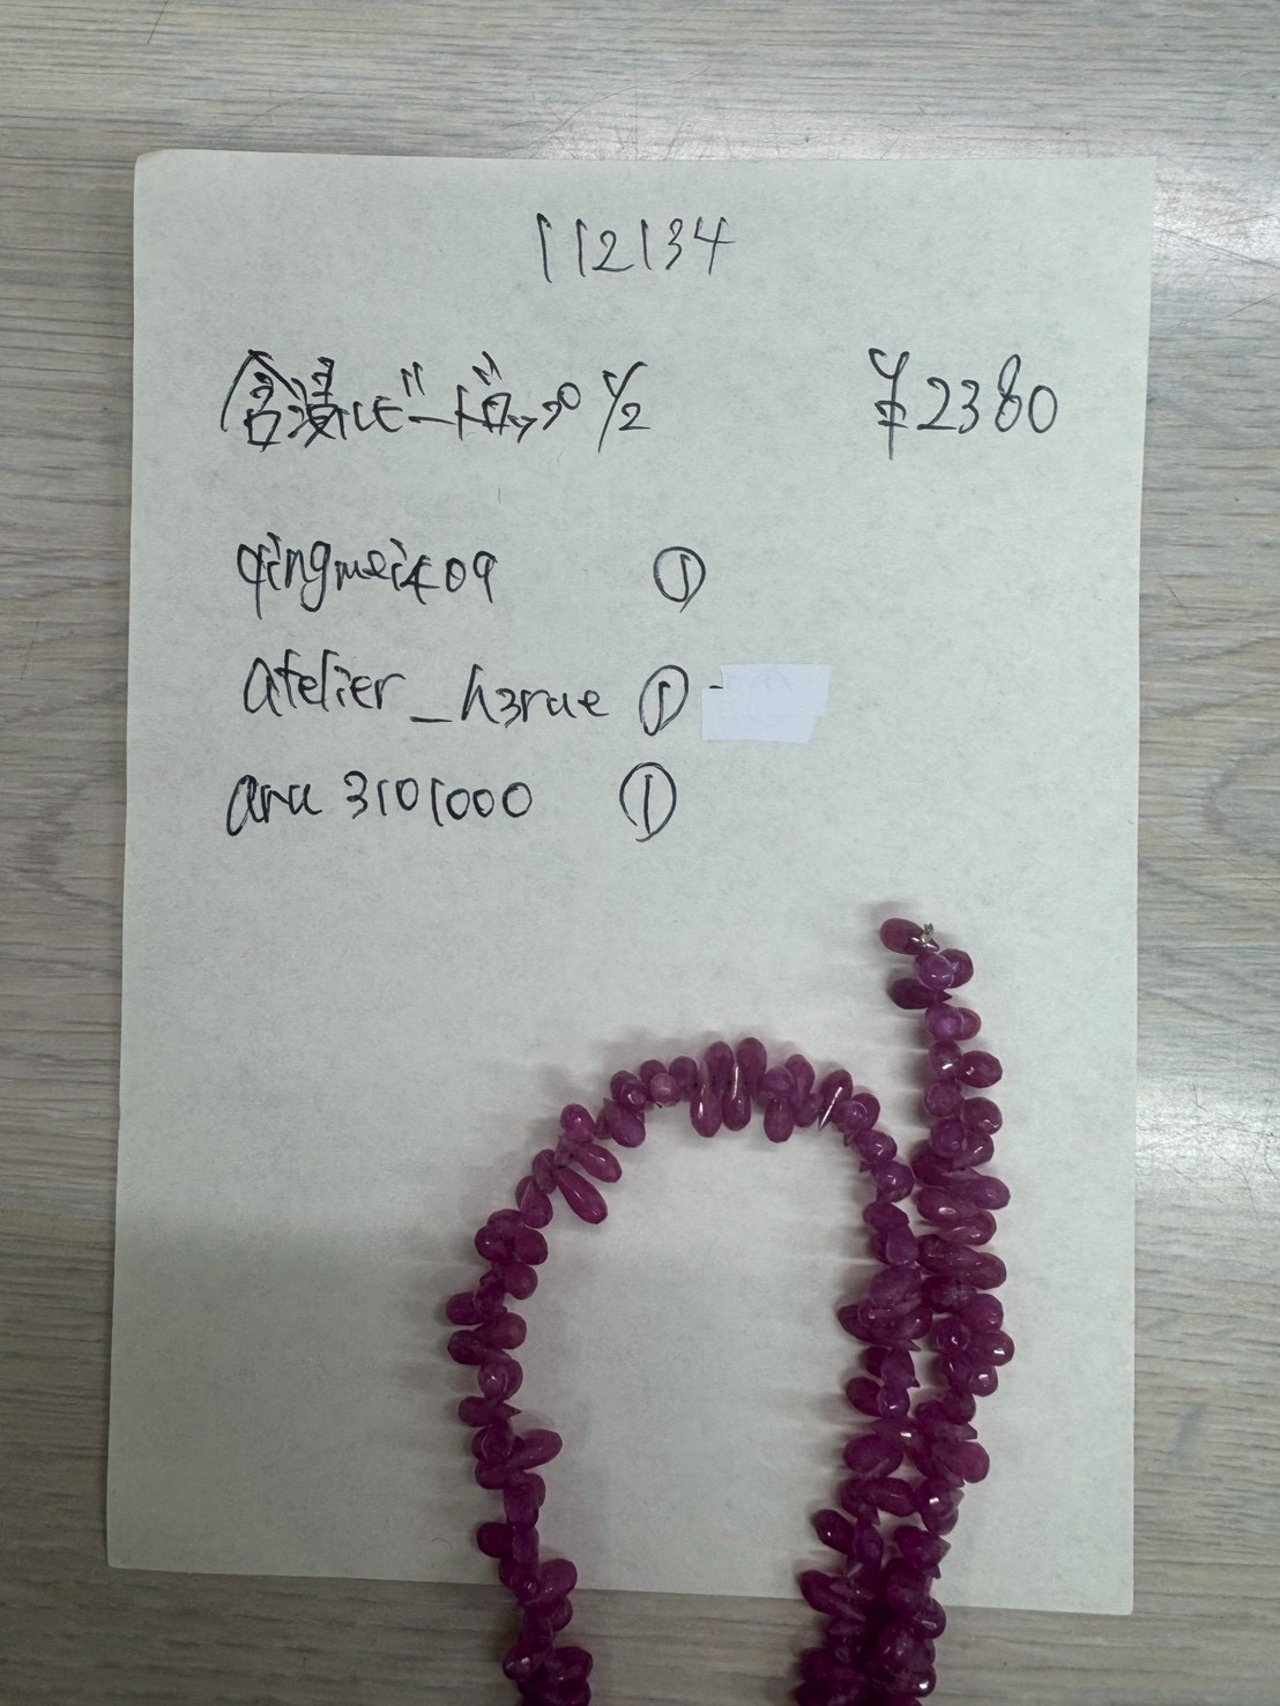 112134
含浸ルビードロップ 1/2 ¥2380
qingmei409 ①
atelier_h3rue ①
aru3101000 ①